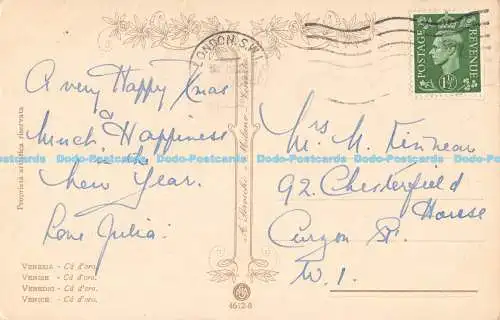 LONDON. S.W.1.
POSTAGE REVENUE
1½D
A very Happy Xmas
& much Happiness
in the
New Year.
Love Julia.
Mrs M. Kinnear
92. Chesterfield
House
Curzon St.
W. 1.
Proprietà artistica riservata
Milano
VENEZIA - Cà d'oro.
VENISE - Cà d'oro.
VENEDIG - Cà d'oro.
VENICE - Cà d'oro.
4612-8
Dodo-Postcards Dodo-Postcards Dodo-Postcards Dodo-Postcards Dodo-Postcards Dodo-Postcards